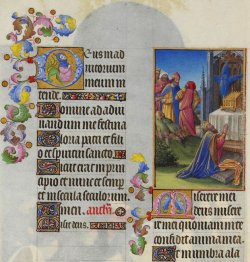 Deus in ad
iutorium
meum in
tende.
Domine ad adiu
uandum me festina
Gloria patri et fi
lio et spiritui sancto
Sicut erat in prin
cipio et nunc et sem
et in secula seculorum.
Amen.
deus
Miserere mei
deus misere
mei in te
confidit anima mea
Et in umbra ala